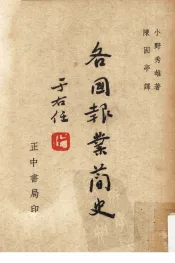 小野秀雄著
陳固亭譯
各國報業簡史
于右任
正中書局印